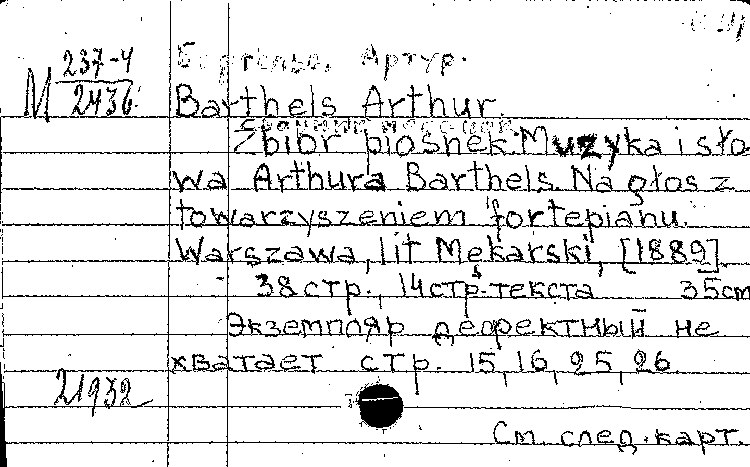 М 237-4
2436
Артур.
Barthels Arthur
Zbiór piosnek. Muzyka i sło
wa Arthura Barthels. Na głos z
towarzyszeniem fortepianu.
Warszawa, lit Mękarski, [1889].
38 стр., 14 стр. текста 35 cm
Экземпляр дефектный не
хватает стр. 15, 16, 25, 26
21932
См. след. карт.